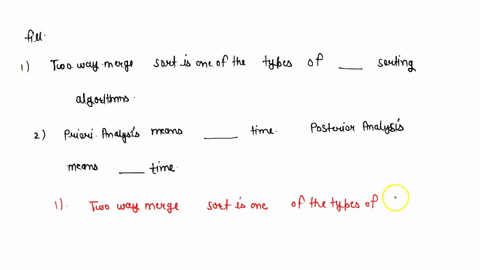 fill
1) Two way merge sort is one of the types of ___ sorting
algorithms.
2) Priori Analysis means ____ time. Posterior Analysis
means ___ time.
1). Two way merge sort is one of the types of